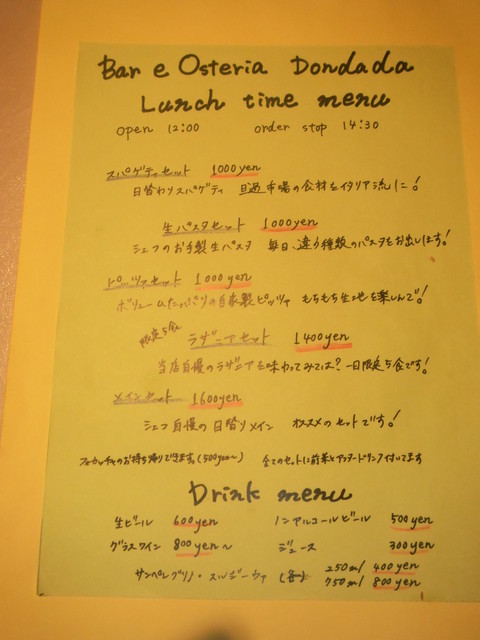 Bar e Osteria Dondada
Lunch time menu
open 12:00 order stop 14:30
スパゲティセット 1000yen
日替わりスパゲティ 旦過市場の食材をイタリア流に!
生パスタセット 1000yen
シェフのお手製生パスタ 毎日、違う種類のパスタをお出しします!
ピッツァセット 1000yen
ボリュームたっぷりの自家製ピッツァ もちもち生地を楽しんで!
限定5食 ラザニアセット 1400yen
当店自慢のラザニアを味わってみては? 一日限定5食です!
メインセット 1600yen
シェフ自慢の日替りメイン オススメのセットです!
フォカッチャのお持ち帰りできます。(500yen〜) 全てのセットに前菜とアフタードリンク付いてます
Drink menu
生ビール 600yen ノンアルコールビール 500yen
グラスワイン 800yen〜 ジュース 300yen
サンペレグリノ・スルジーヴァ (各) 250ml 400yen
750ml 800yen